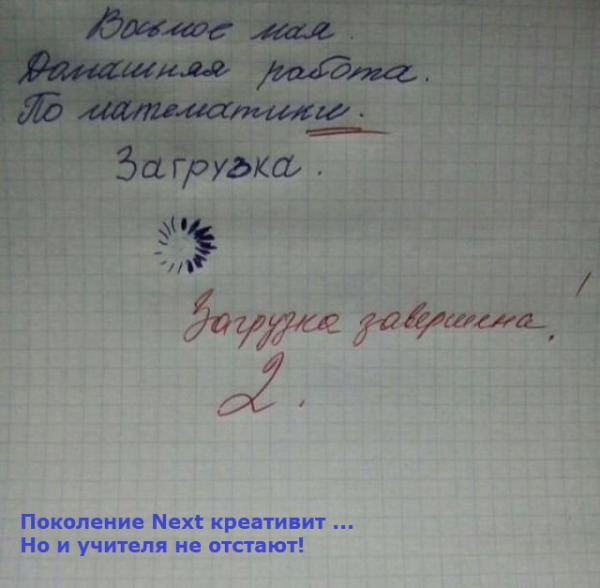 Восьмое мая.
Домашняя работа.
По математики.
Загрузка.
Загрузка завершена!
2.
Поколение Next креативит ...
Но и учителя не отстают!